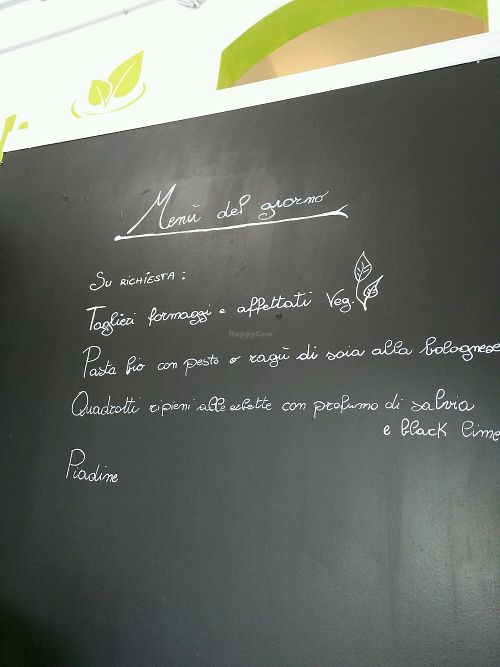 Menù del giorno
Su richiesta:
Taglieri formaggi e affettati Veg.
HappyCow
Pasta bio con pesto o ragù di soia alla bolognese
Quadrotti ripieni alle erbette con profumo di salvia
e black lime
Piadine